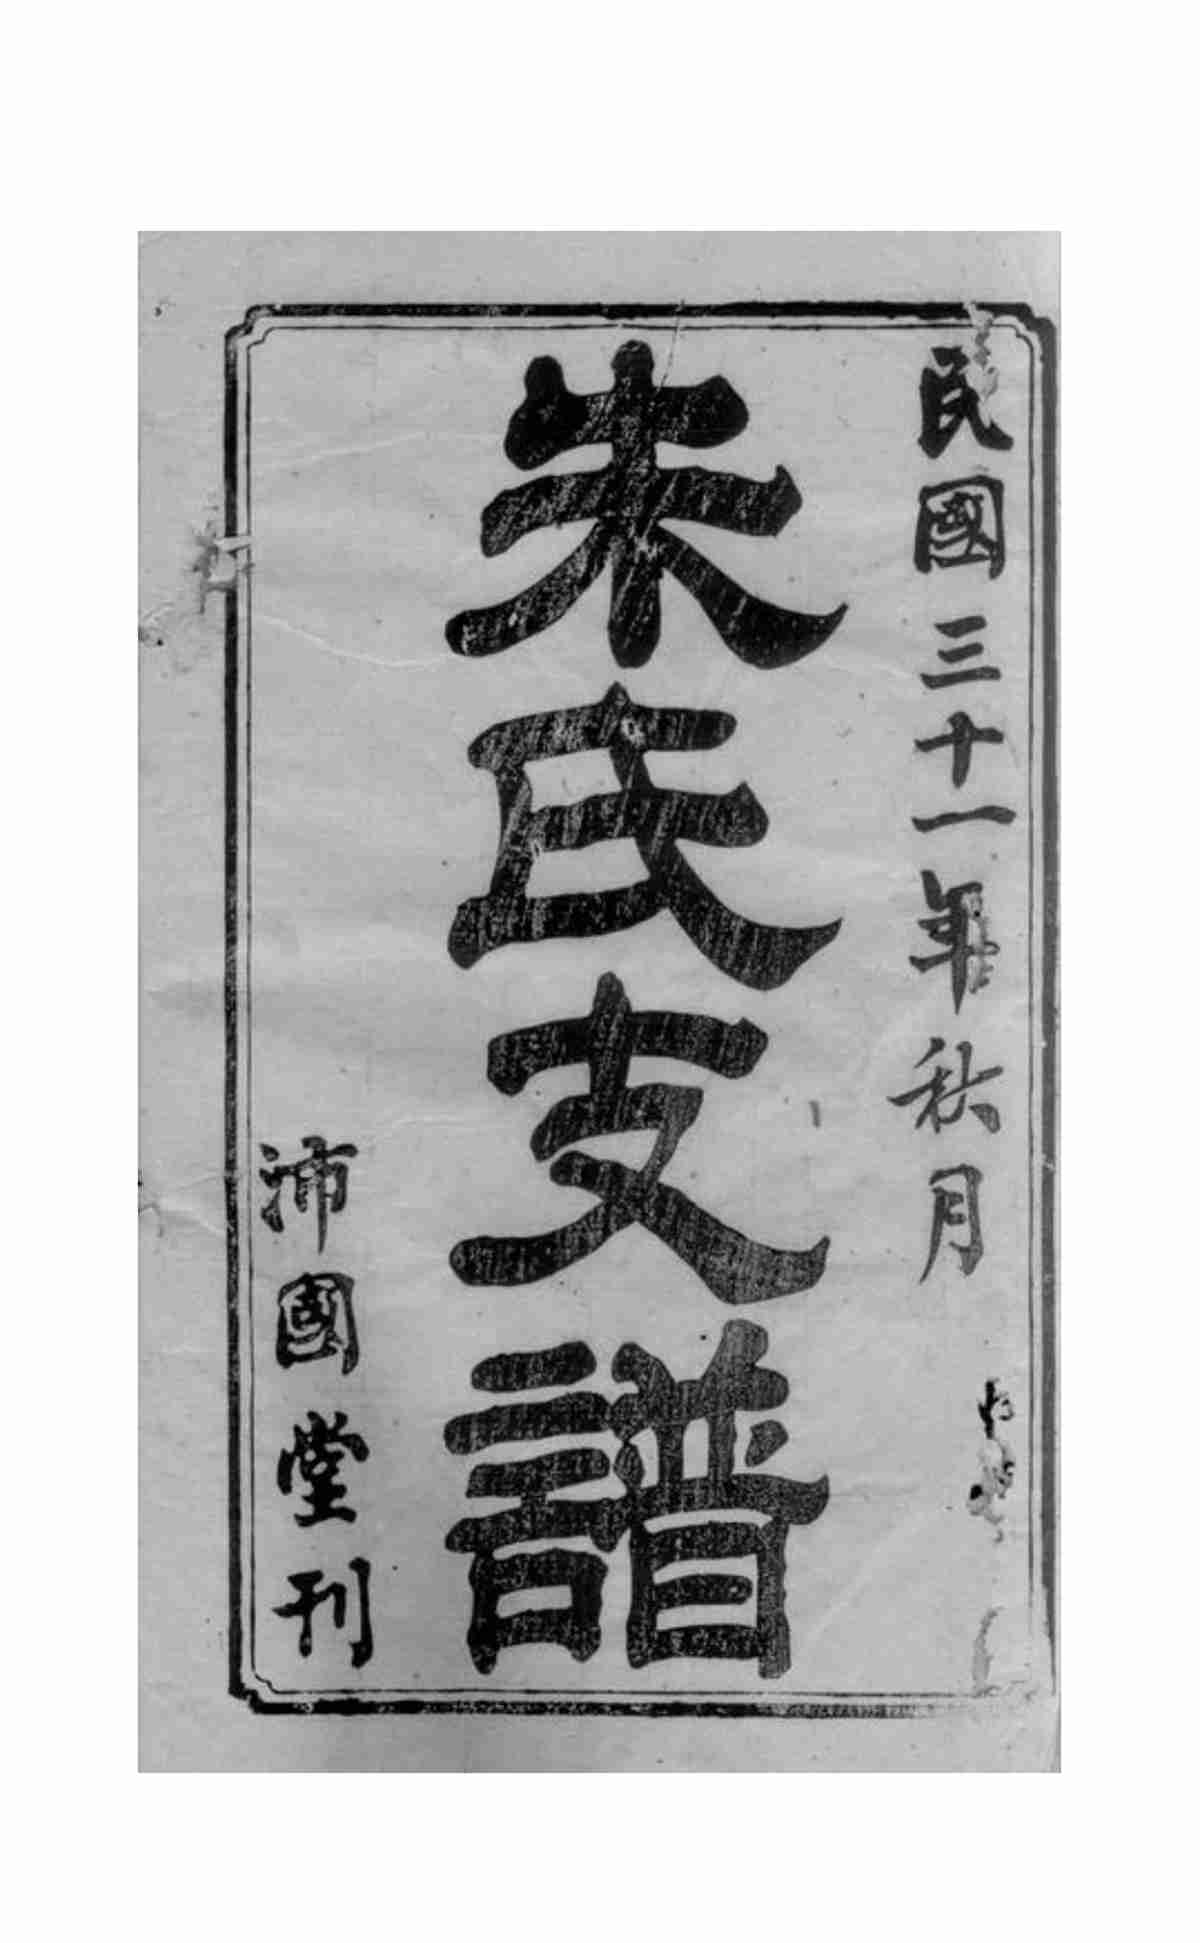 民國三十一年秋月
朱氏支譜
沛國堂刊